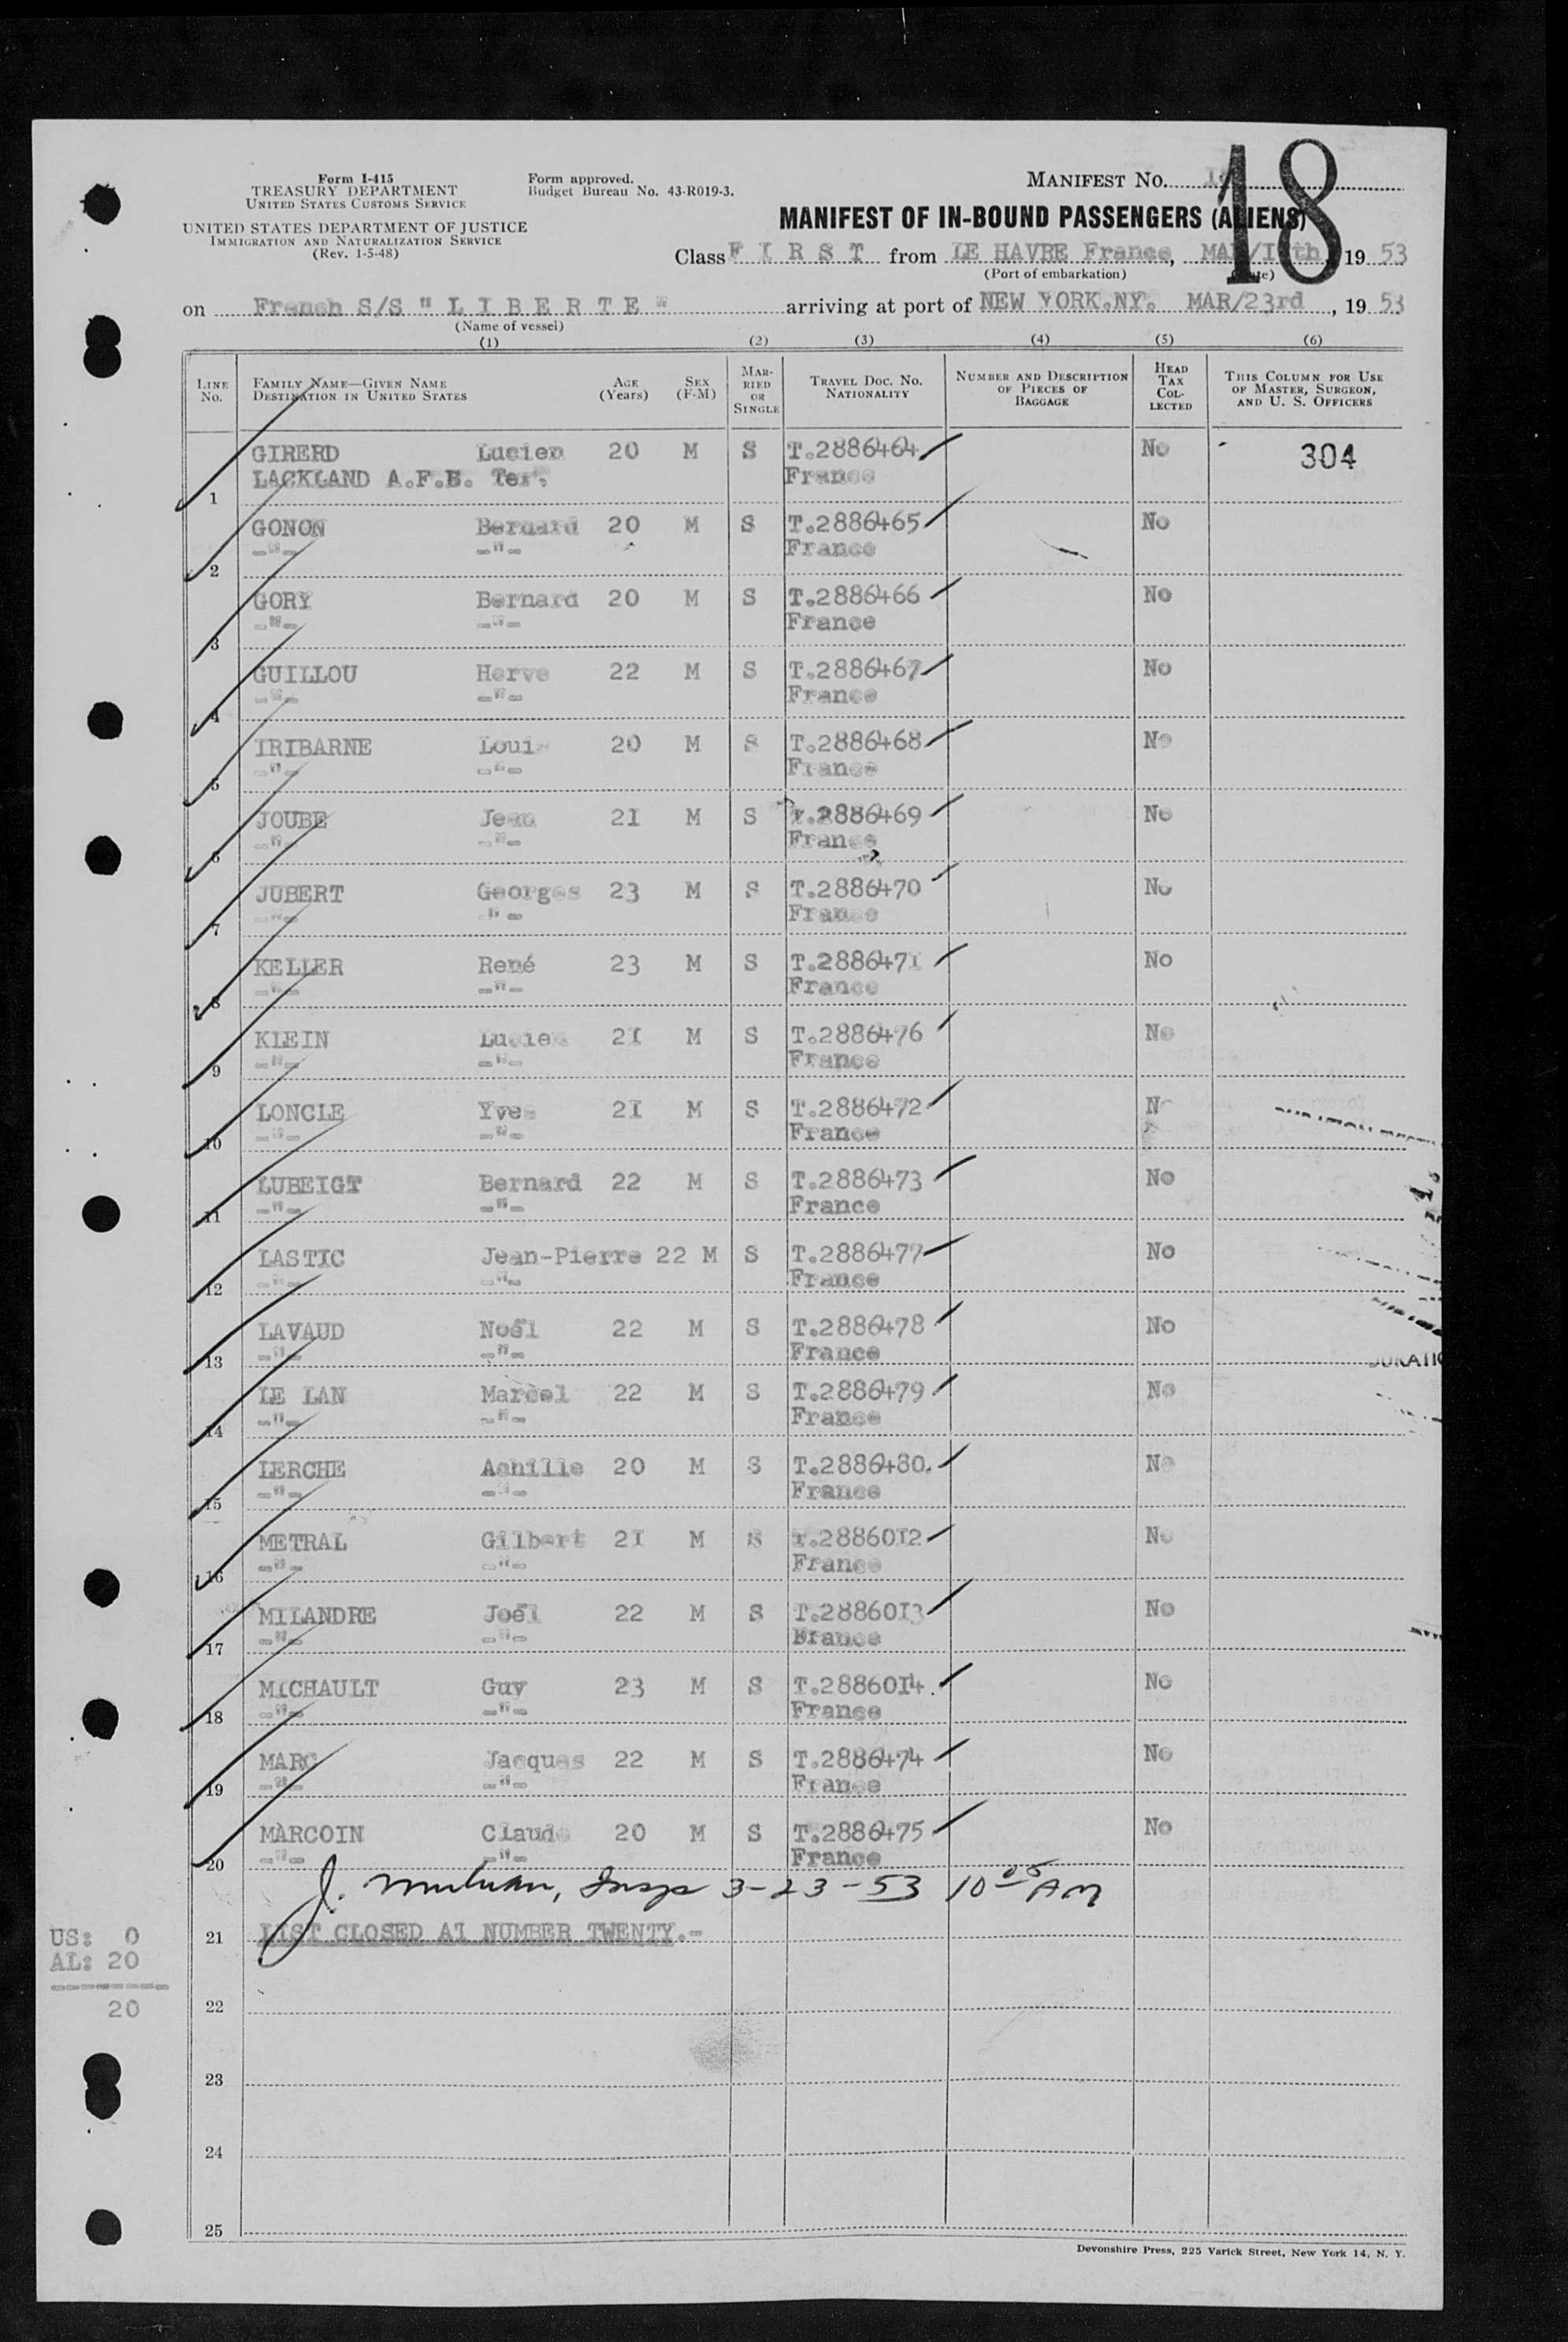 18
Form I-415
TREASURY DEPARTMENT
UNITED STATES CUSTOMS SERVICE
UNITED STATES DEPARTMENT OF JUSTICE
IMMIGRATION AND NATURALIZATION SERVICE
(Rev. 1-5-48)
Form approved.
Budget Bureau No. 43-R019-3.
MANIFEST NO.
MANIFEST OF IN-BOUND PASSENGERS (ALIENS)
Class F I R S T from LE HAVRE France, 19 53
(Port of embarkation)
on French S/S " L I B E R T E " arriving at port of NEW YORK.NY. MAR/23rd, 19 53
(Name of vessel)
(1) (2) (3) (4) (5) (6)
LINE No. FAMILY NAME—GIVEN NAME DESTINATION IN UNITED STATES AGE (Years) SEX (F-M) MARRIED OR SINGLE TRAVEL DOC. NO. NATIONALITY NUMBER AND DESCRIPTION OF PIECES OF BAGGAGE HEAD TAX COLLECTED THIS COLUMN FOR USE OF MASTER, SURGEON, AND U. S. OFFICERS
GIRERD Lucien 20 M S T.2886464 No 304
1 LACKLAND A.F.B. Tex. France
GONON Bernard 20 M S T.2886465 No
2 -"- -"- France
GORY Bernard 20 M S T.2886466 No
3 -"- -"- France
GUILLOU Herve 22 M S T.2886467 No
4 -"- -"- France
IRIBARNE Louis 20 M S T.2886468 No
5 -"- -"- France
JOUBE Jean 21 M S T.2886469 No
6 -"- -"- France
JUBERT Georges 23 M S T.2886470 No
7 -"- -"- France
KELLER René 23 M S T.2886471 No
8 -"- -"- France
KLEIN Lucien 21 M S T.2886476 No
9 -"- -"- France
LONCLE Yves 21 M S T.2886472 No
10 -"- -"- France
LUBEIGT Bernard 22 M S T.2886473 No
11 -"- -"- France
LASTIC Jean-Pierre 22 M S T.2886477 No
12 -"- -"- France
LAVAUD Noël 22 M S T.2886478 No
13 -"- -"- France
LE LAN Marcel 22 M S T.2886479 No
14 -"- -"- France
LERCHE Achille 20 M S T.2886480. No
15 -"- -"- France
METRAL Gilbert 21 M S T.2886012 No
16 -"- -"- France
MILANDRE Joël 22 M S T.2886013 No
17 -"- -"- France
MICHAULT Guy 23 M S T.2886014. No
18 -"- -"- France
MARC Jacques 22 M S T.2886474 No
19 -"- -"- France
MARCOIN Claude 20 M S T.2886475 No
20 -"- -"- France
J. Insp 3-23-53 10 05 AM
21 LIST CLOSED AT NUMBER TWENTY.-
US: 0
AL: 20
20
22
23
24
25
Devonshire Press, 225 Varick Street, New York 14, N. Y.